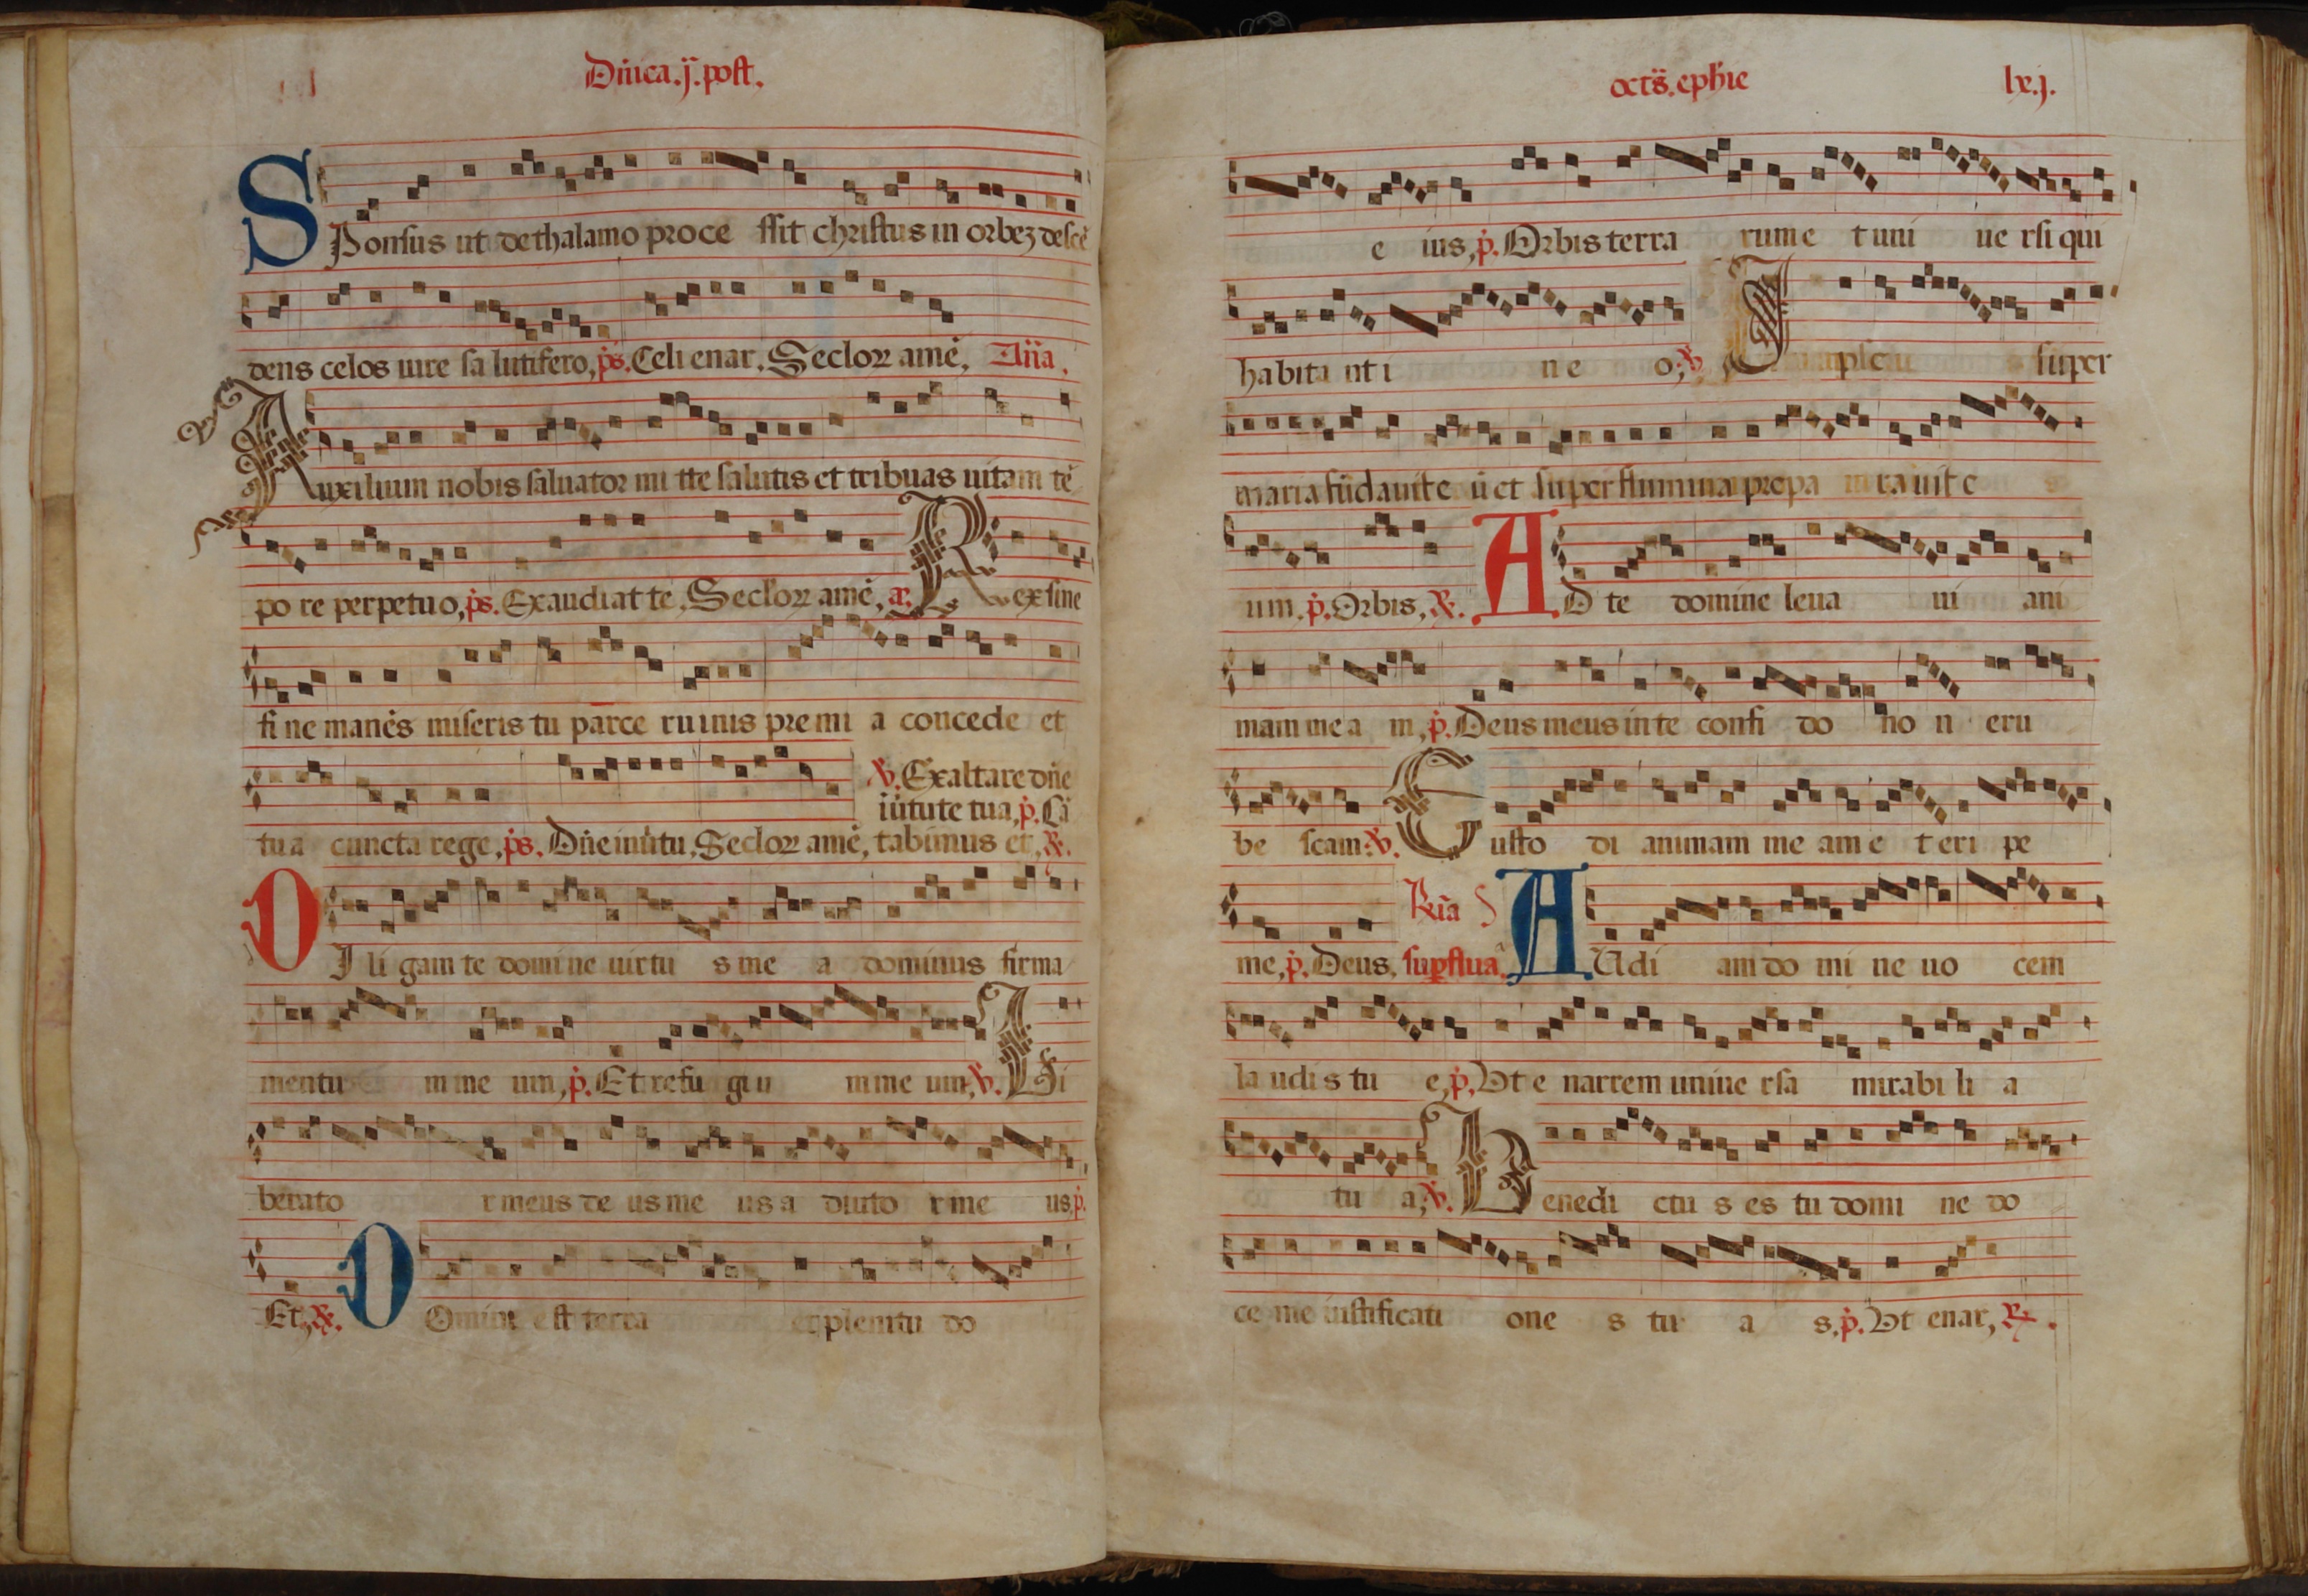 Dñica.ij.post.
SPonsus ut de thalamo proce ssit christus in orbez descē
dens celos iure sa lutifero, ps. Celi enar. Seclorꝝ amē, Aña.
Auxilium nobis saluator mi tte salutis et tribuas uitam tē
po re perpetuo, ps. Exaudiat te, Seclorꝝ amē, a. Rex sine
fi ne manēs miseris tu parce ruinis premi a concede et
℣. Exaltare dñe
tua cuncta rege, ps. Dñe in uirtu, Seclorꝝ amē, tabimus et, ℟.
DI li gam te domi ne uirtu s me a dominus firma
mentu m me um, p. Et refu giu m me um, ℣. Li
berato r meus de us me us a diuto r me us, p.
Et, ℟. DOmini est terra et plenitu do
octs̄. ephīe
lx.j.
e ius, p. Orbis terra rum e t uni ue rsi qui
habita nt i n e o, ℣. Ipse super
maria fūdauit e ū et super flumina prepa rauit e
um. p. Orbis, ℟. AD te domine leua ui ani
mam me a m, p. Deus meus in te confi do no n eru
be scam: ℣. Custo di animam me am e t eri pe
me, p. Deus, AUdi am do mi ne uo cem
la udi s tu e, p. Vt e narrem uniue rsa mirabi li a
tu a, ℣. Benedi ctu s es tu domi ne do
ce me iustificati one s tu a s. p. Vt enar, ℟.